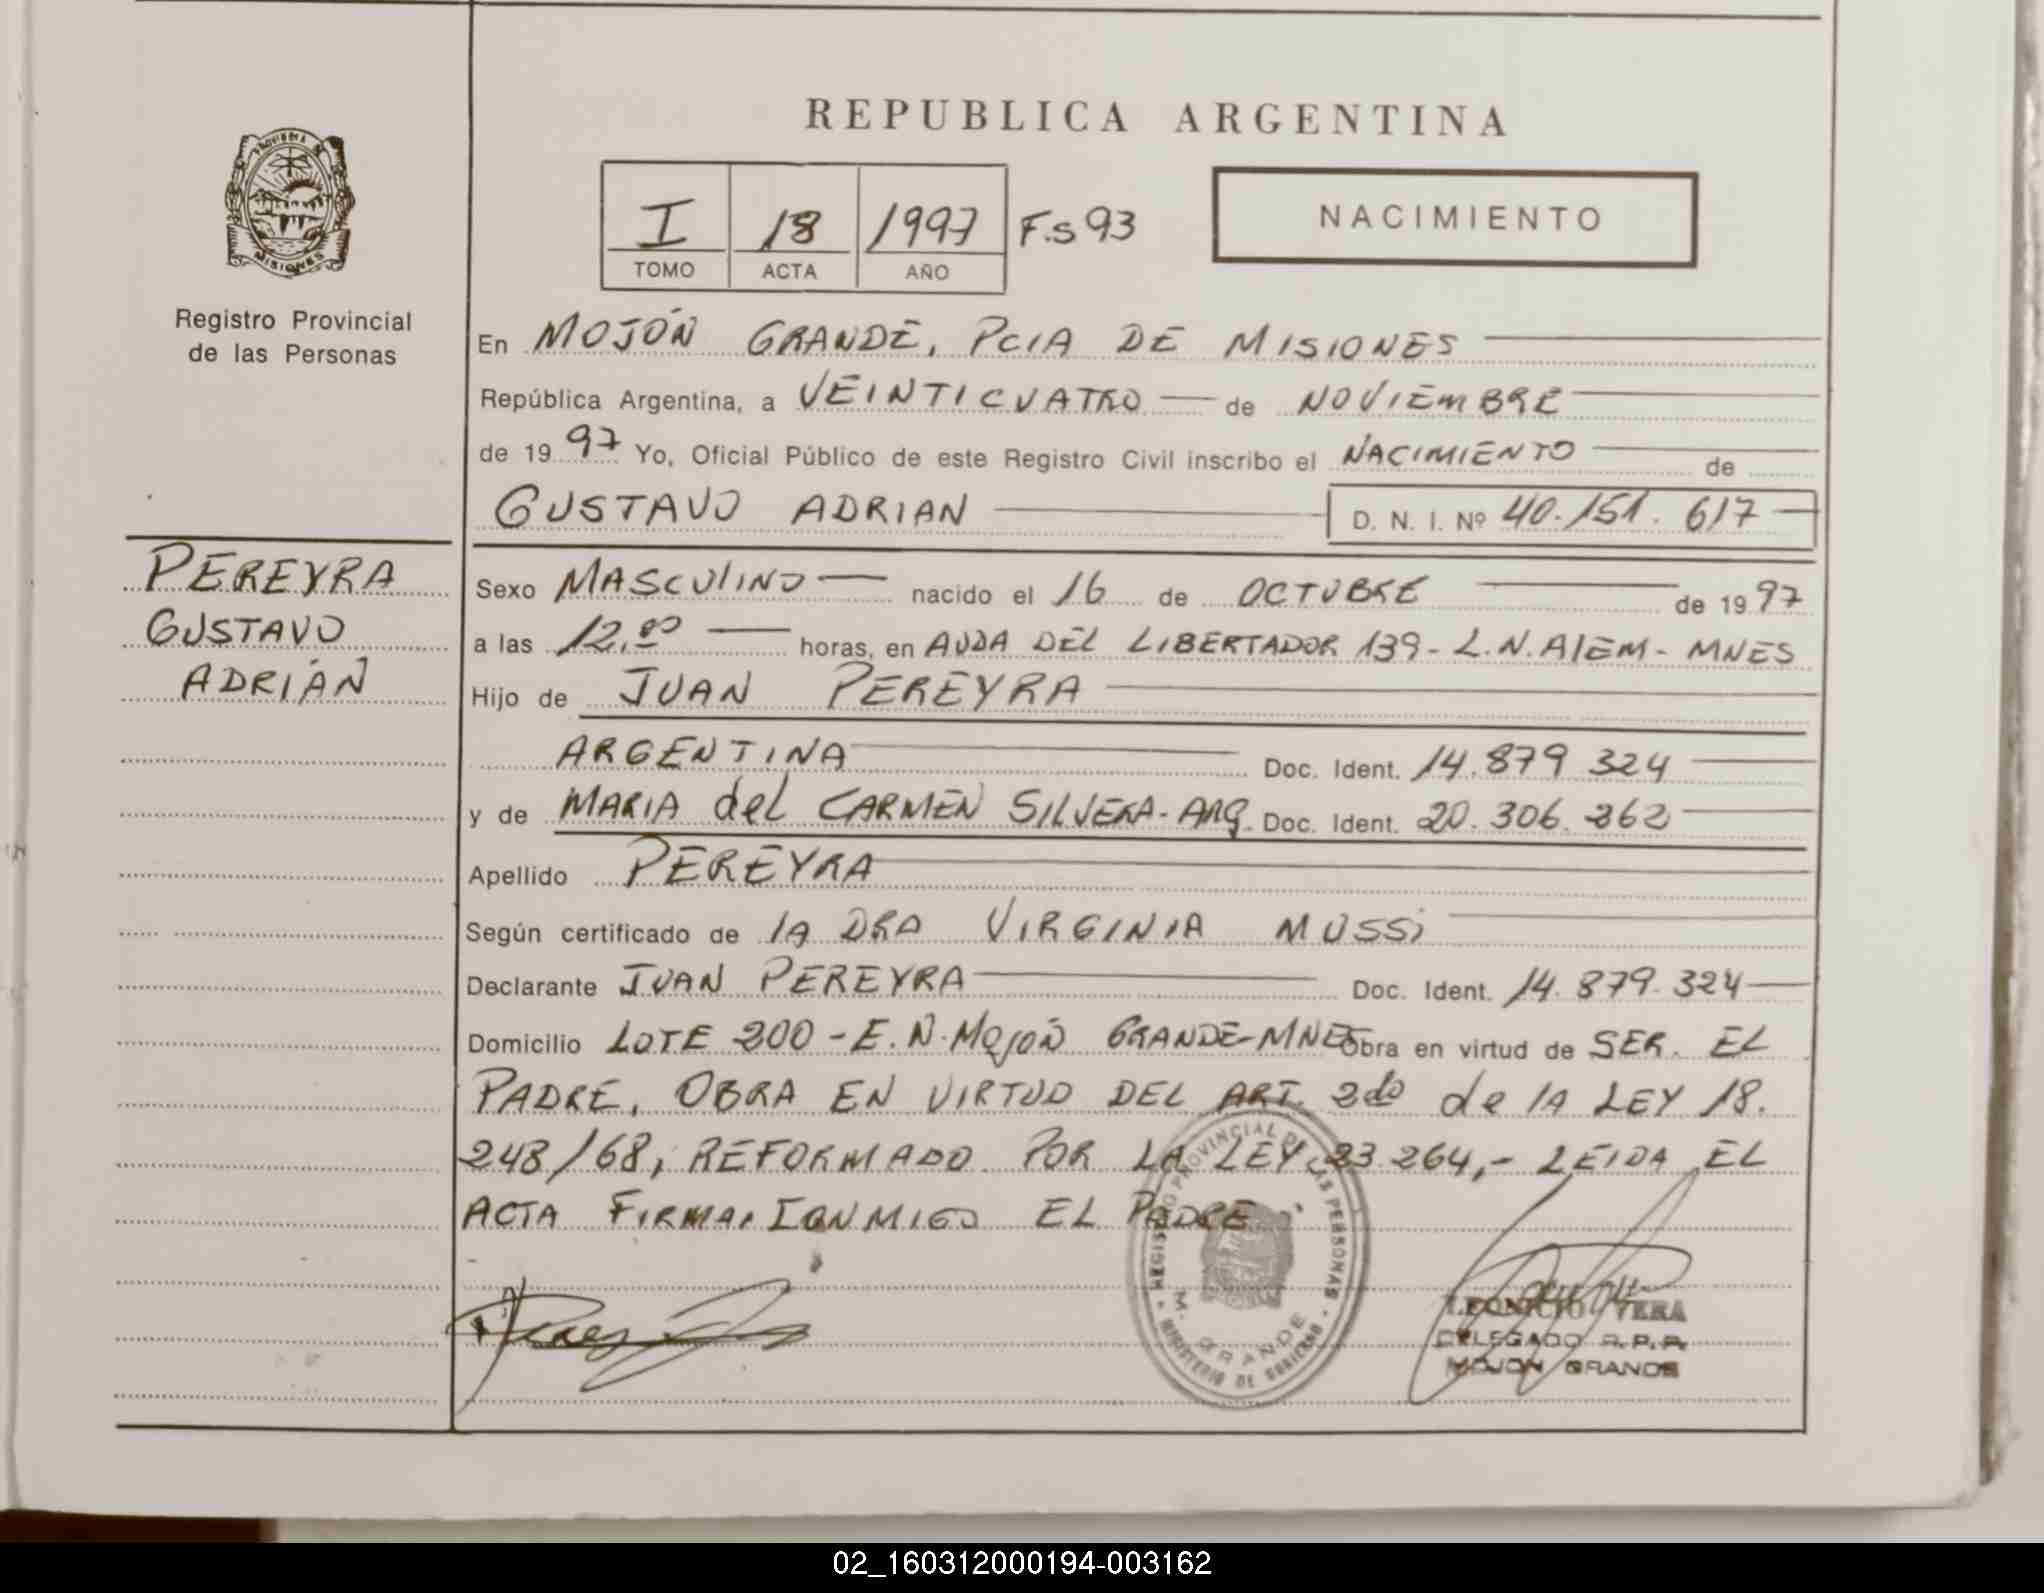 REPUBLICA ARGENTINA
PROVINCIA DE
MISIONES
Registro Provincial
de las Personas
I 18 1997 F.s 93
TOMO ACTA AÑO
NACIMIENTO
En MOJÓN GRANDE, PCIA DE MISIONES
República Argentina, a VEINTICUATRO de NOVIEMBRE
de 1997 Yo, Oficial Público de este Registro Civil inscribo el NACIMIENTO de
GUSTAVO ADRIAN D. N. I. Nº 40.151.617
PEREYRA
GUSTAVO
ADRIÁN
Sexo MASCULINO nacido el 16 de OCTUBRE de 1997
a las 12,00 horas, en AVDA DEL LIBERTADOR 139- L.N. AlEM- MNES
Hijo de JUAN PEREYRA
ARGENTINA Doc. Ident. 14.879.324
y de MARIA del CARMEN SILVERA- ARG. Doc. Ident. 20.306.262
Apellido PEREYRA
Según certificado de lA DRA VIRGINIA MUSSi
Declarante JUAN PEREYRA Doc. Ident. 14.879.324
Domicilio LOTE 200 - E. N. MOJÓN GRANDE-MNES Obra en virtud de SER. EL
PADRE, OBRA EN VIRTUD DEL ART. 2do de lA LEY 18.
248/68, REFORMADO POR LA LEY 23.264,- LEIDA EL
ACTA FIRMA, CONMIGO EL PADRE
REGISTRO PROVINCIAL DE LAS PERSONAS
M. GRANDE
MINISTERIO DE GOBIERNO
LEONICIO VERA
DELEGADO R.P.P.
MOJON GRANDE
02_160312000194-003162